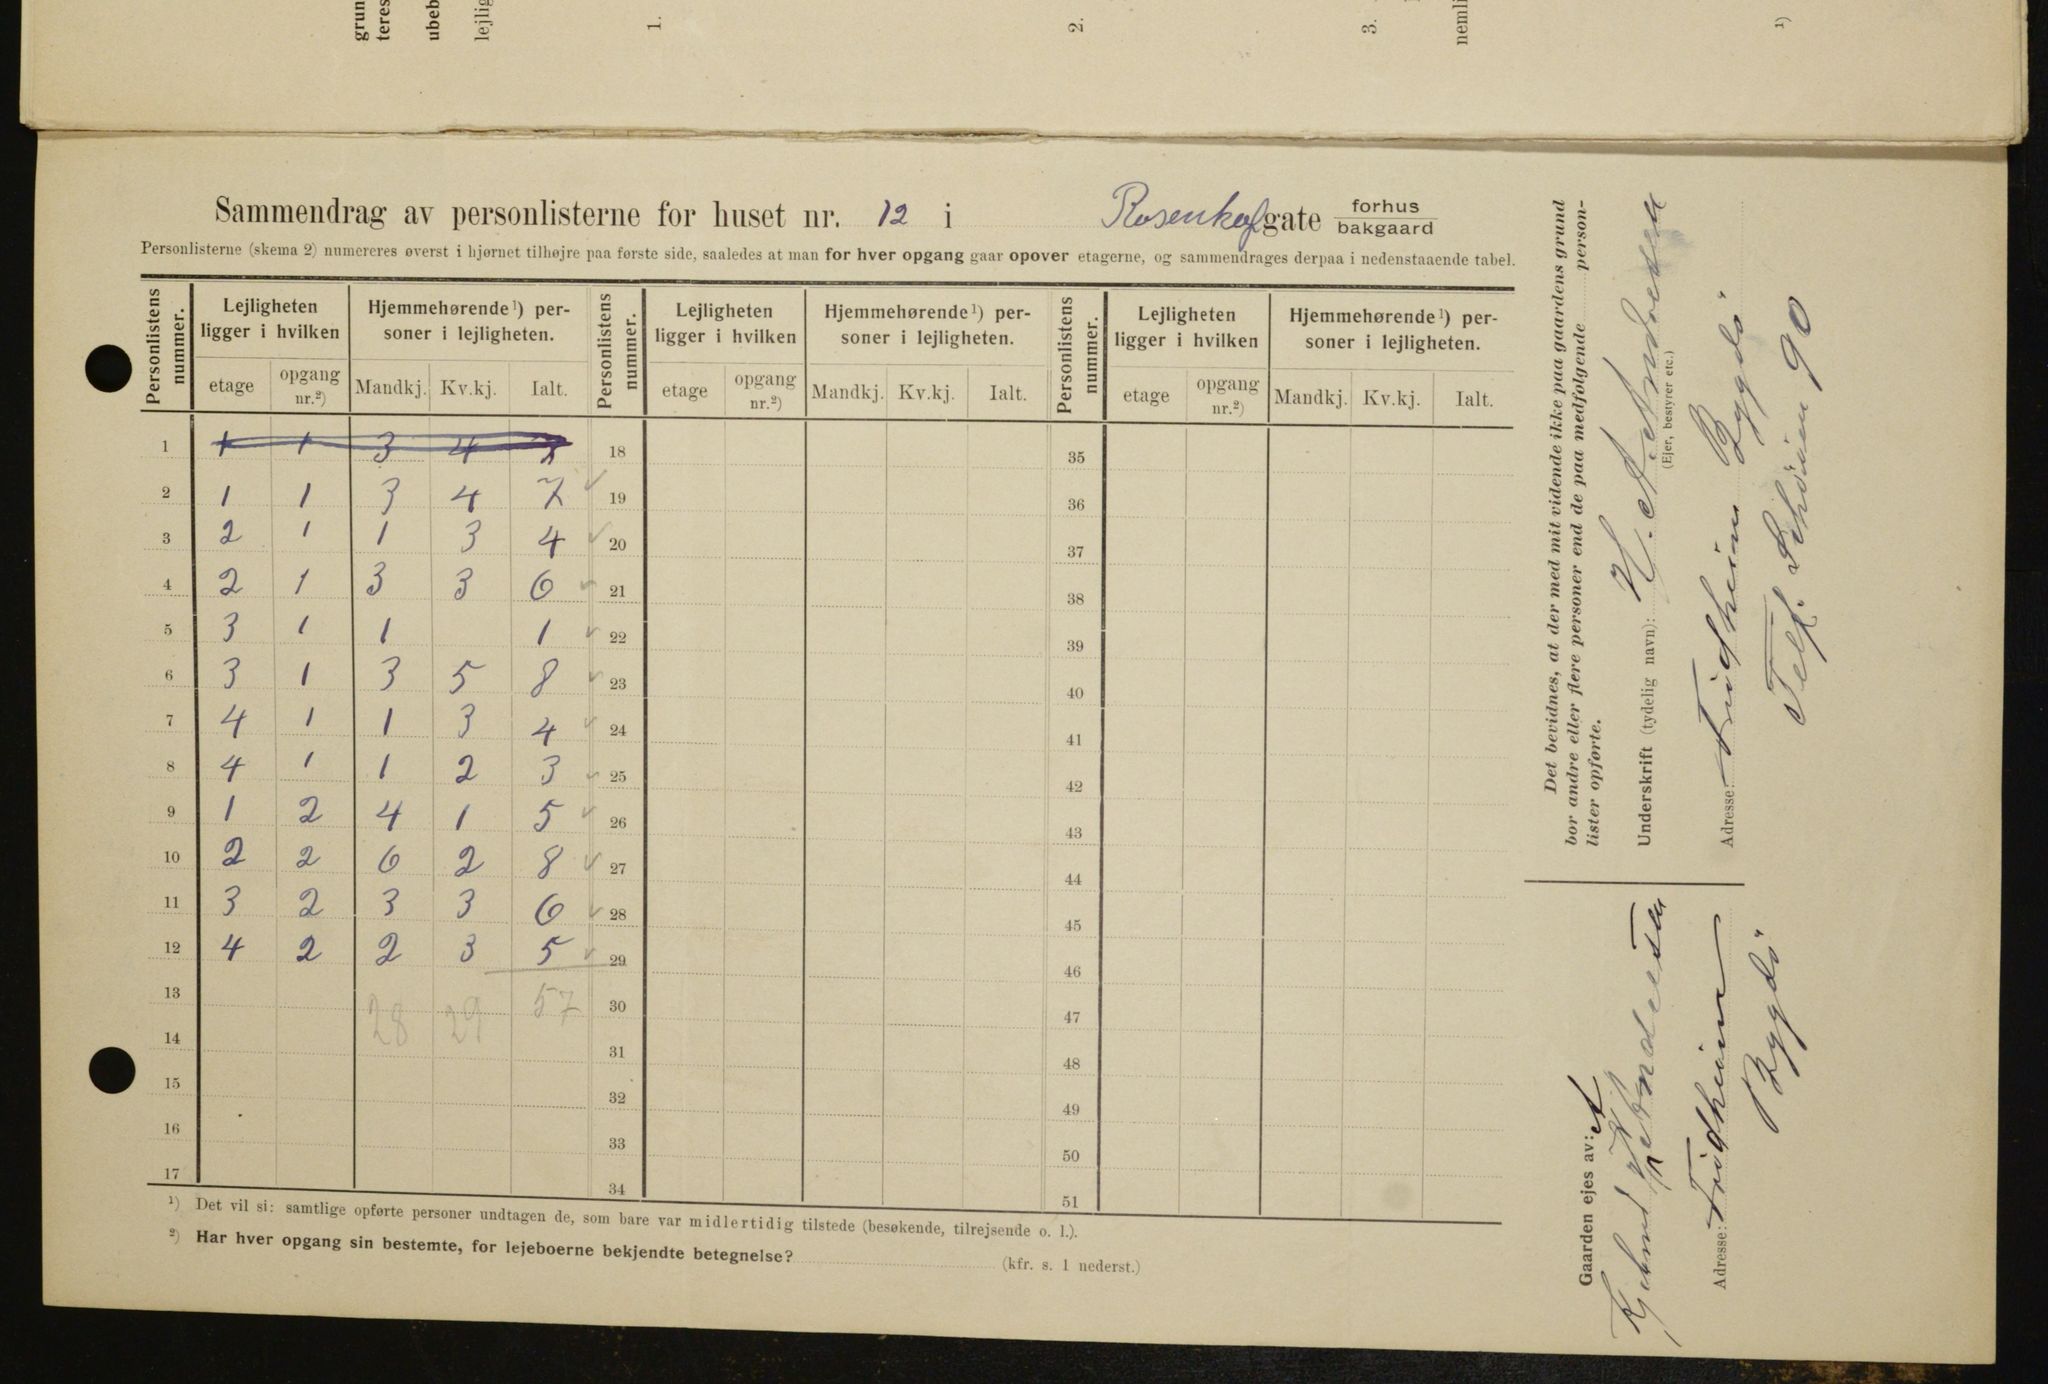 grun
teres
ubeb
lejlig
1.
2.
3.
nemli
1)
Sammendrag av personlisterne for huset nr. 12 i Rosenkof gate forhus
bakgaard
Personlisterne (skema 2) numereres øverst i hjørnet tilhøjre paa første side, saaledes at man for hver opgang gaar opover etagerne, og sammendrages derpaa i nedenstaaende tabel.
Personlistens nummer. Lejligheten ligger i hvilken Hjemmehørende 1) personer i lejligheten. Personlistens nummer. Lejligheten ligger i hvilken Hjemmehørende 1) personer i lejligheten. Personlistens nummer. Lejligheten ligger i hvilken Hjemmehørende 1) personer i lejligheten.
etage opgang nr.2) Mandkj. Kv.kj. Ialt. etage opgang nr.2) Mandkj. Kv.kj. Ialt. etage opgang nr.2) Mandkj. Kv.kj. Ialt.
1 1 1 3 4 7 18 35
2 1 1 3 4 7 19 36
3 2 1 1 3 4 20 37
4 2 1 3 3 6 21 38
5 3 1 1 1 22 39
6 3 1 3 5 8 23 40
7 4 1 1 3 4 24 41
8 4 1 1 2 3 25 42
9 1 2 4 1 5 26 43
10 2 2 6 2 8 27 44
11 3 2 3 3 6 28 45
12 4 2 2 3 5 29 46
13 28 29 57 30 47
14 31 48
15 32 49
16 33 50
17 34 51
1) Det vil si: samtlige opførte personer undtagen de, som bare var midlertidig tilstede (besøkende, tilrejsende o. l.).
2) Har hver opgang sin bestemte, for lejeboerne bekjendte betegnelse? (kfr. s. 1 nederst.)
Det bevidnes, at der med mit vidende ikke paa gaardens grund
bor andre eller flere personer end de paa medfølgende person-
lister opførte.
Underskrift (tydelig navn): H. Andersen
(Ejer, bestyrer etc.)
Adresse: Fridheim Bygdö
Telf. 90
Gaarden ejes av: A
Adresse: Fridheim
Bygdö